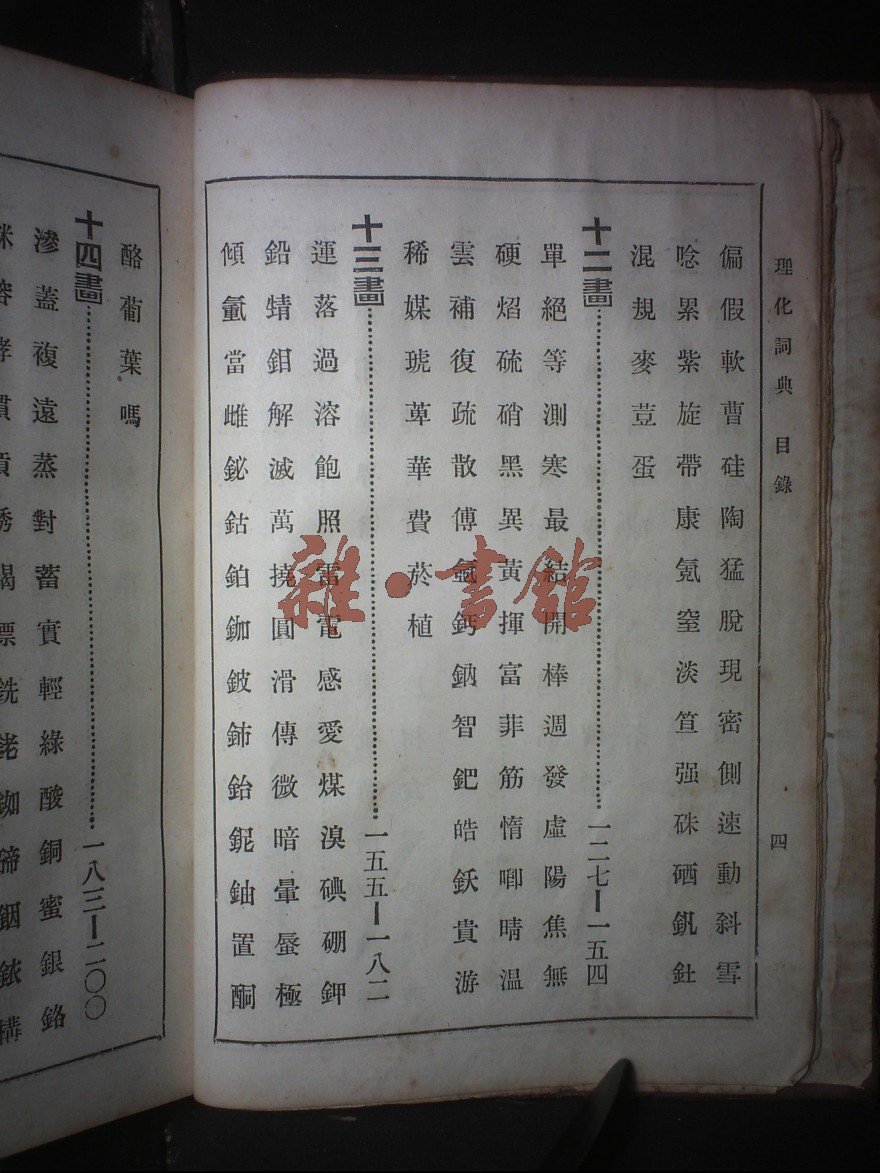 理化詞典 目錄 四
偏假軟曹硅陶猛脫現密側速動斜雪
唸累紫旋帶康氪窒淡笪强硃硒釩釷
混規麥荳蛋
十二畫 一二七—一五四
單絕等測寒最結開棒週發虛陽焦無
硬熖硫硝黑異黃揮富菲筋惰唧晴温
雲補復疏散傅氬鈣鈉智鈀皓鈥貴游
稀媒琥萆華費菸植
十三畫 一五五—一八二
運落過溶飽照雷電感愛煤溴碘硼鉀
鉛蜻鉬解滅萬撓圓滑傳微暗暈蜃極
傾氭當雌鉍鈷鉑鉫鈹鈰鉿鈮鈾置酮
酪葡葉嗎
十四畫 一八三—二〇〇
滲蓋複遠蒸對蓄實輕綠酸銅蜜銀鉻
雜·書館